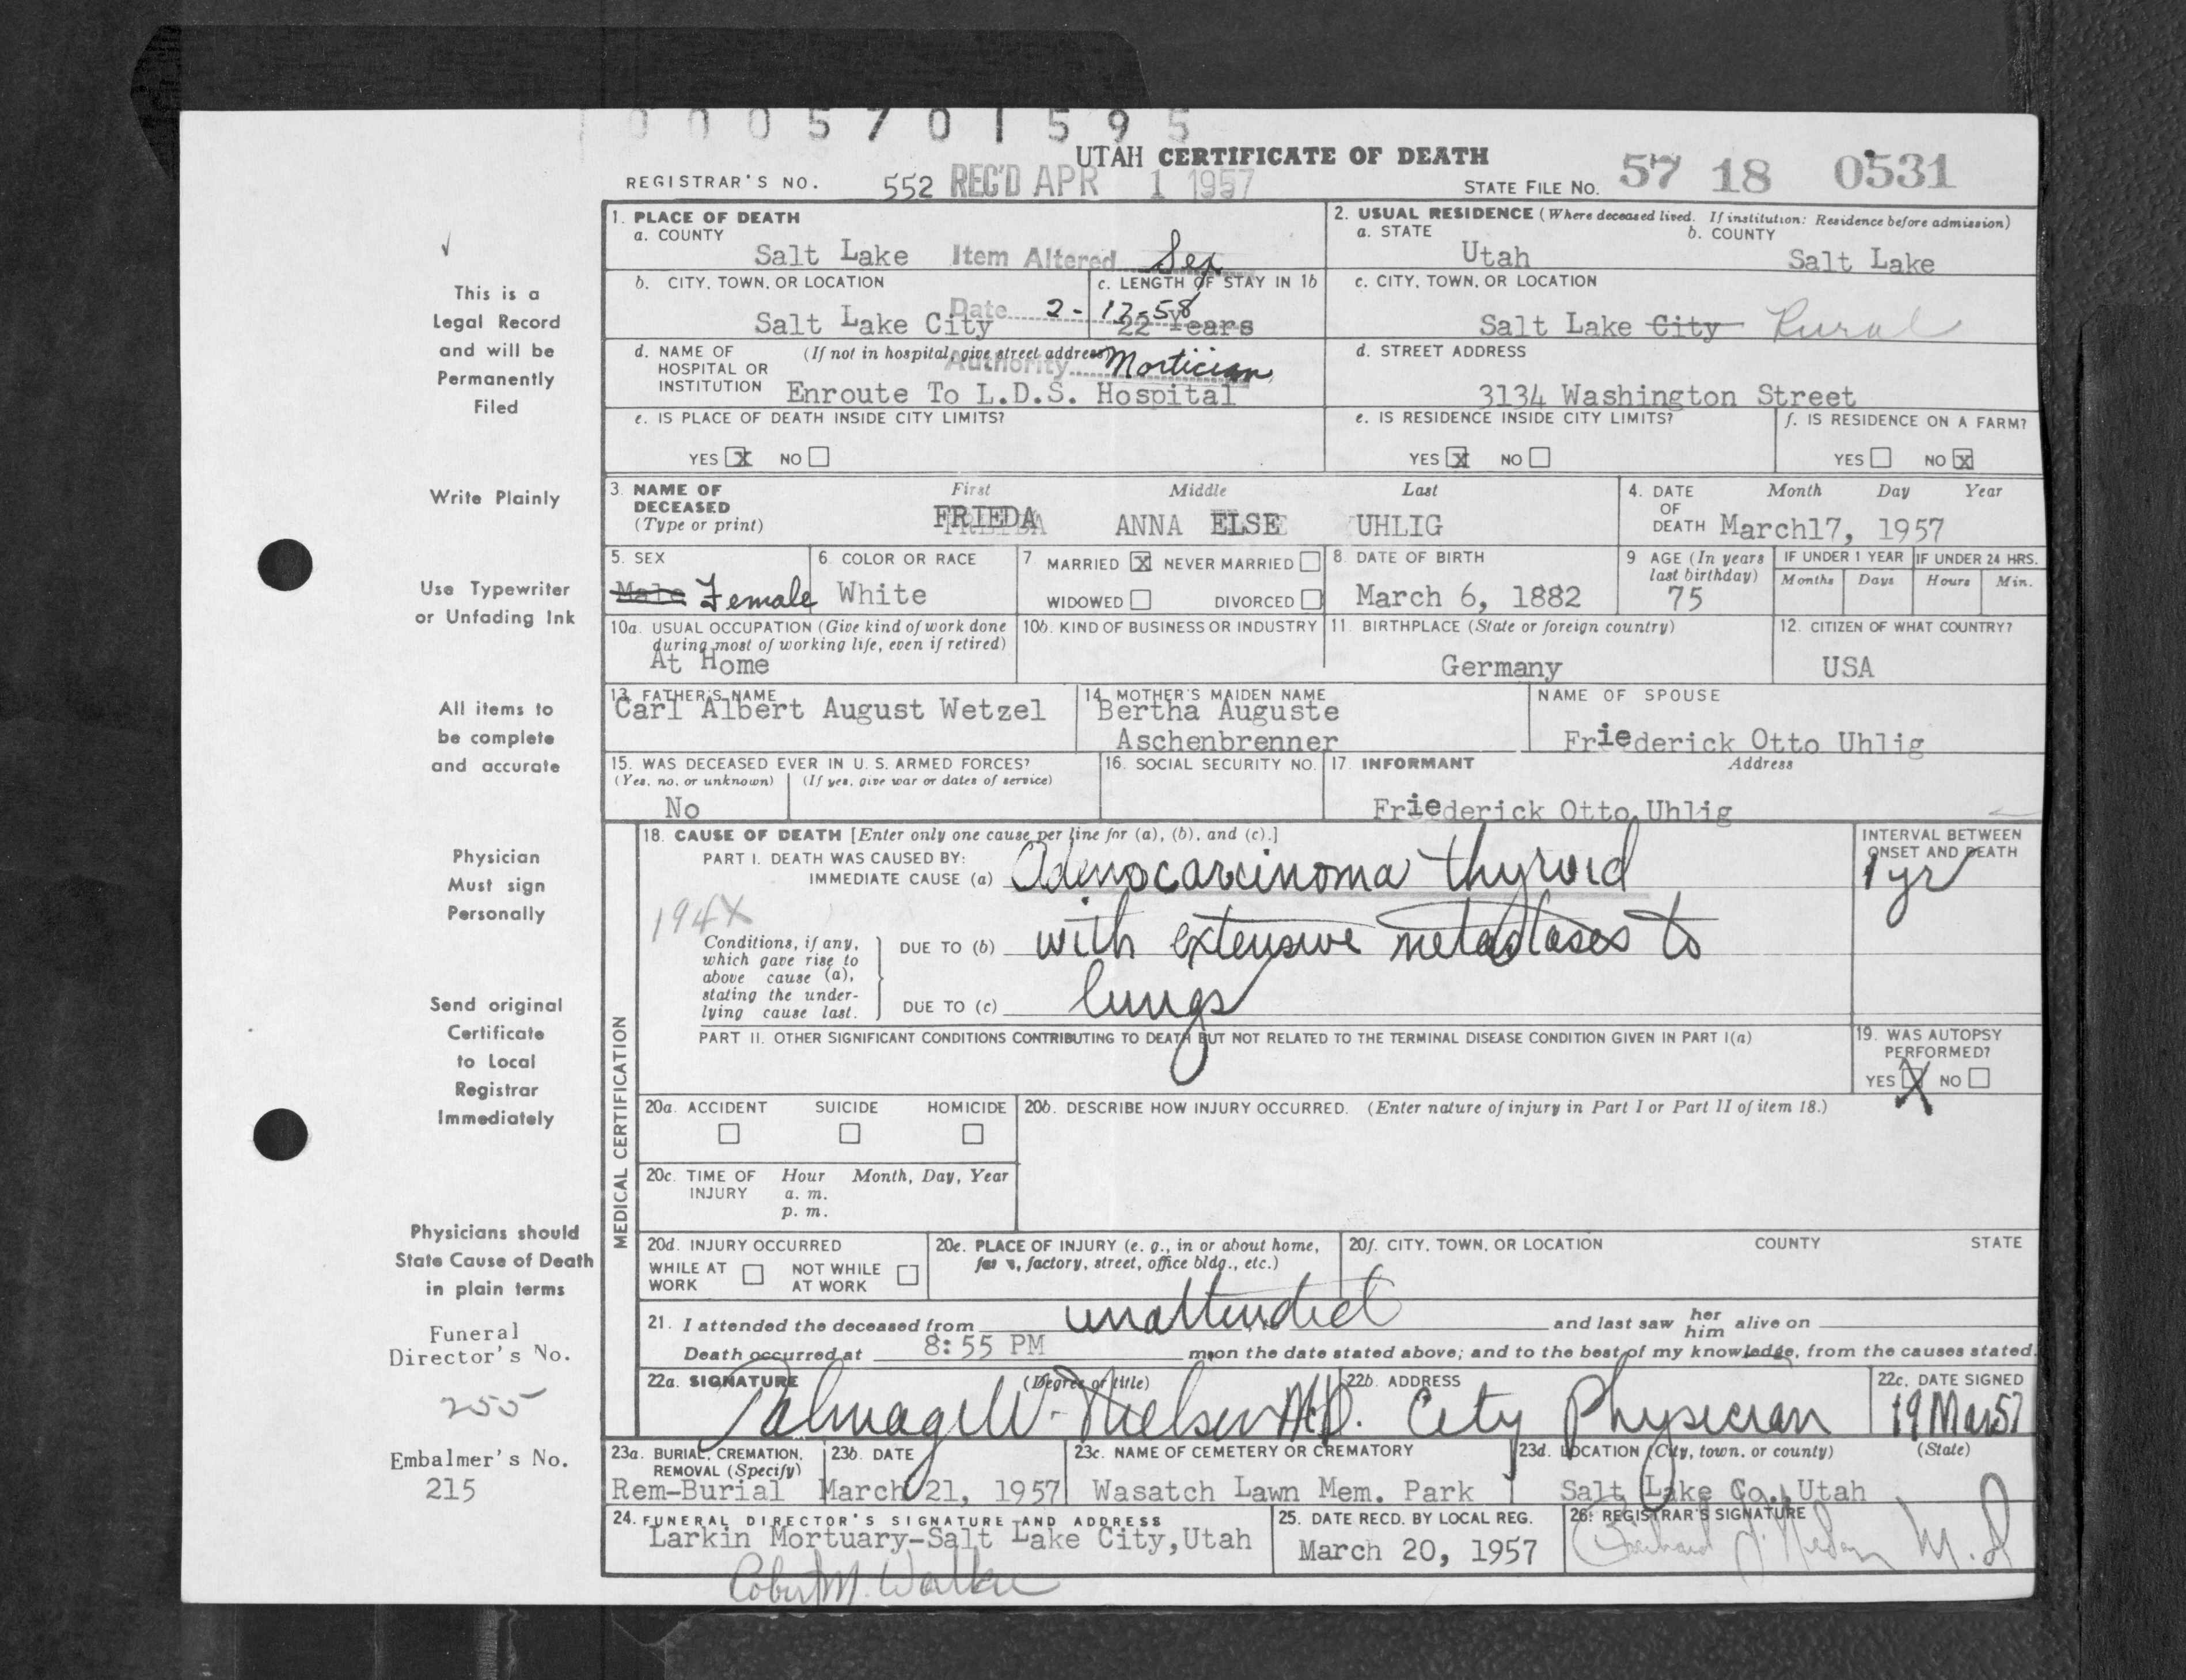 0 0 0 5 7 0 1 5 9 5
UTAH CERTIFICATE OF DEATH
REGISTRAR'S NO. 552 REC'D APR 1 1957
STATE FILE NO. 57 18 0531
This is a
Legal Record
and will be
Permanently
Filed
Write Plainly
Use Typewriter
or Unfading Ink
All items to
be complete
and accurate
Physician
Must sign
Personally
Send original
Certificate
to Local
Registrar
Immediately
Physicians should
State Cause of Death
in plain terms
Funeral
Director's No.
255
Embalmer's No.
215
1. PLACE OF DEATH
a. COUNTY
Salt Lake
Item Altered Sex
b. CITY, TOWN, OR LOCATION
Salt Lake City
c. LENGTH OF STAY IN 1b
22 Years
Date 2-17-58
d. NAME OF HOSPITAL OR INSTITUTION (If not in hospital, give street address)
Authority Mortician
Enroute To L.D.S. Hospital
e. IS PLACE OF DEATH INSIDE CITY LIMITS?
YES X NO
2. USUAL RESIDENCE (Where deceased lived. If institution: Residence before admission)
a. STATE
Utah
b. COUNTY
Salt Lake
c. CITY, TOWN, OR LOCATION
Salt Lake City Rural
d. STREET ADDRESS
3134 Washington Street
e. IS RESIDENCE INSIDE CITY LIMITS?
YES X NO
f. IS RESIDENCE ON A FARM?
YES NO X
3. NAME OF DECEASED (Type or print)
First Middle Last
FRIEDA ANNA ELSE UHLIG
4. DATE OF DEATH
Month Day Year
March17, 1957
5. SEX
Male Female
6. COLOR OR RACE
White
7. MARRIED X NEVER MARRIED
WIDOWED DIVORCED
8. DATE OF BIRTH
March 6, 1882
9 AGE (In years last birthday)
75
IF UNDER 1 YEAR
Months Days
IF UNDER 24 HRS.
Hours Min.
10a. USUAL OCCUPATION (Give kind of work done during most of working life, even if retired)
At Home
10b. KIND OF BUSINESS OR INDUSTRY
11. BIRTHPLACE (State or foreign country)
Germany
12. CITIZEN OF WHAT COUNTRY?
USA
13. FATHER'S NAME
Carl Albert August Wetzel
14. MOTHER'S MAIDEN NAME
Bertha Auguste
Aschenbrenner
NAME OF SPOUSE
Friederick Otto Uhlig
15. WAS DECEASED EVER IN U. S. ARMED FORCES?
(Yes, no, or unknown) (If yes, give war or dates of service)
No
16. SOCIAL SECURITY NO.
17. INFORMANT Address
Friederick Otto Uhlig
MEDICAL CERTIFICATION
18. CAUSE OF DEATH [Enter only one cause per line for (a), (b), and (c).]
PART I. DEATH WAS CAUSED BY:
IMMEDIATE CAUSE (a) Adenocarcinoma thyroid
194X
Conditions, if any, which gave rise to above cause (a), stating the underlying cause last.
DUE TO (b) with extensive metastases to
DUE TO (c) lungs
INTERVAL BETWEEN ONSET AND DEATH
1 yr
PART II. OTHER SIGNIFICANT CONDITIONS CONTRIBUTING TO DEATH BUT NOT RELATED TO THE TERMINAL DISEASE CONDITION GIVEN IN PART I(a)
19. WAS AUTOPSY PERFORMED?
YES X NO
20a. ACCIDENT SUICIDE HOMICIDE
20b. DESCRIBE HOW INJURY OCCURRED. (Enter nature of injury in Part I or Part II of item 18.)
20c. TIME OF INJURY
Hour Month, Day, Year
a. m.
p. m.
20d. INJURY OCCURRED
WHILE AT WORK NOT WHILE AT WORK
20e. PLACE OF INJURY (e. g., in or about home, farm, factory, street, office bldg., etc.)
20f. CITY, TOWN, OR LOCATION COUNTY STATE
21. I attended the deceased from unattended and last saw her him alive on
Death occurred at 8:55 PM m, on the date stated above; and to the best of my knowledge, from the causes stated.
22a. SIGNATURE (Degree or title)
Talmage W. Nielsen M.D.
22b. ADDRESS
City Physician
22c. DATE SIGNED
19 Mar 57
23a. BURIAL, CREMATION, REMOVAL (Specify)
Rem-Burial
23b. DATE
March 21, 1957
23c. NAME OF CEMETERY OR CREMATORY
Wasatch Lawn Mem. Park
23d. LOCATION (City, town, or county) (State)
Salt Lake Co., Utah
24. FUNERAL DIRECTOR'S SIGNATURE AND ADDRESS
Larkin Mortuary-Salt Lake City, Utah
Robert M. Walker
25. DATE RECD. BY LOCAL REG.
March 20, 1957
26. REGISTRAR'S SIGNATURE
M.D